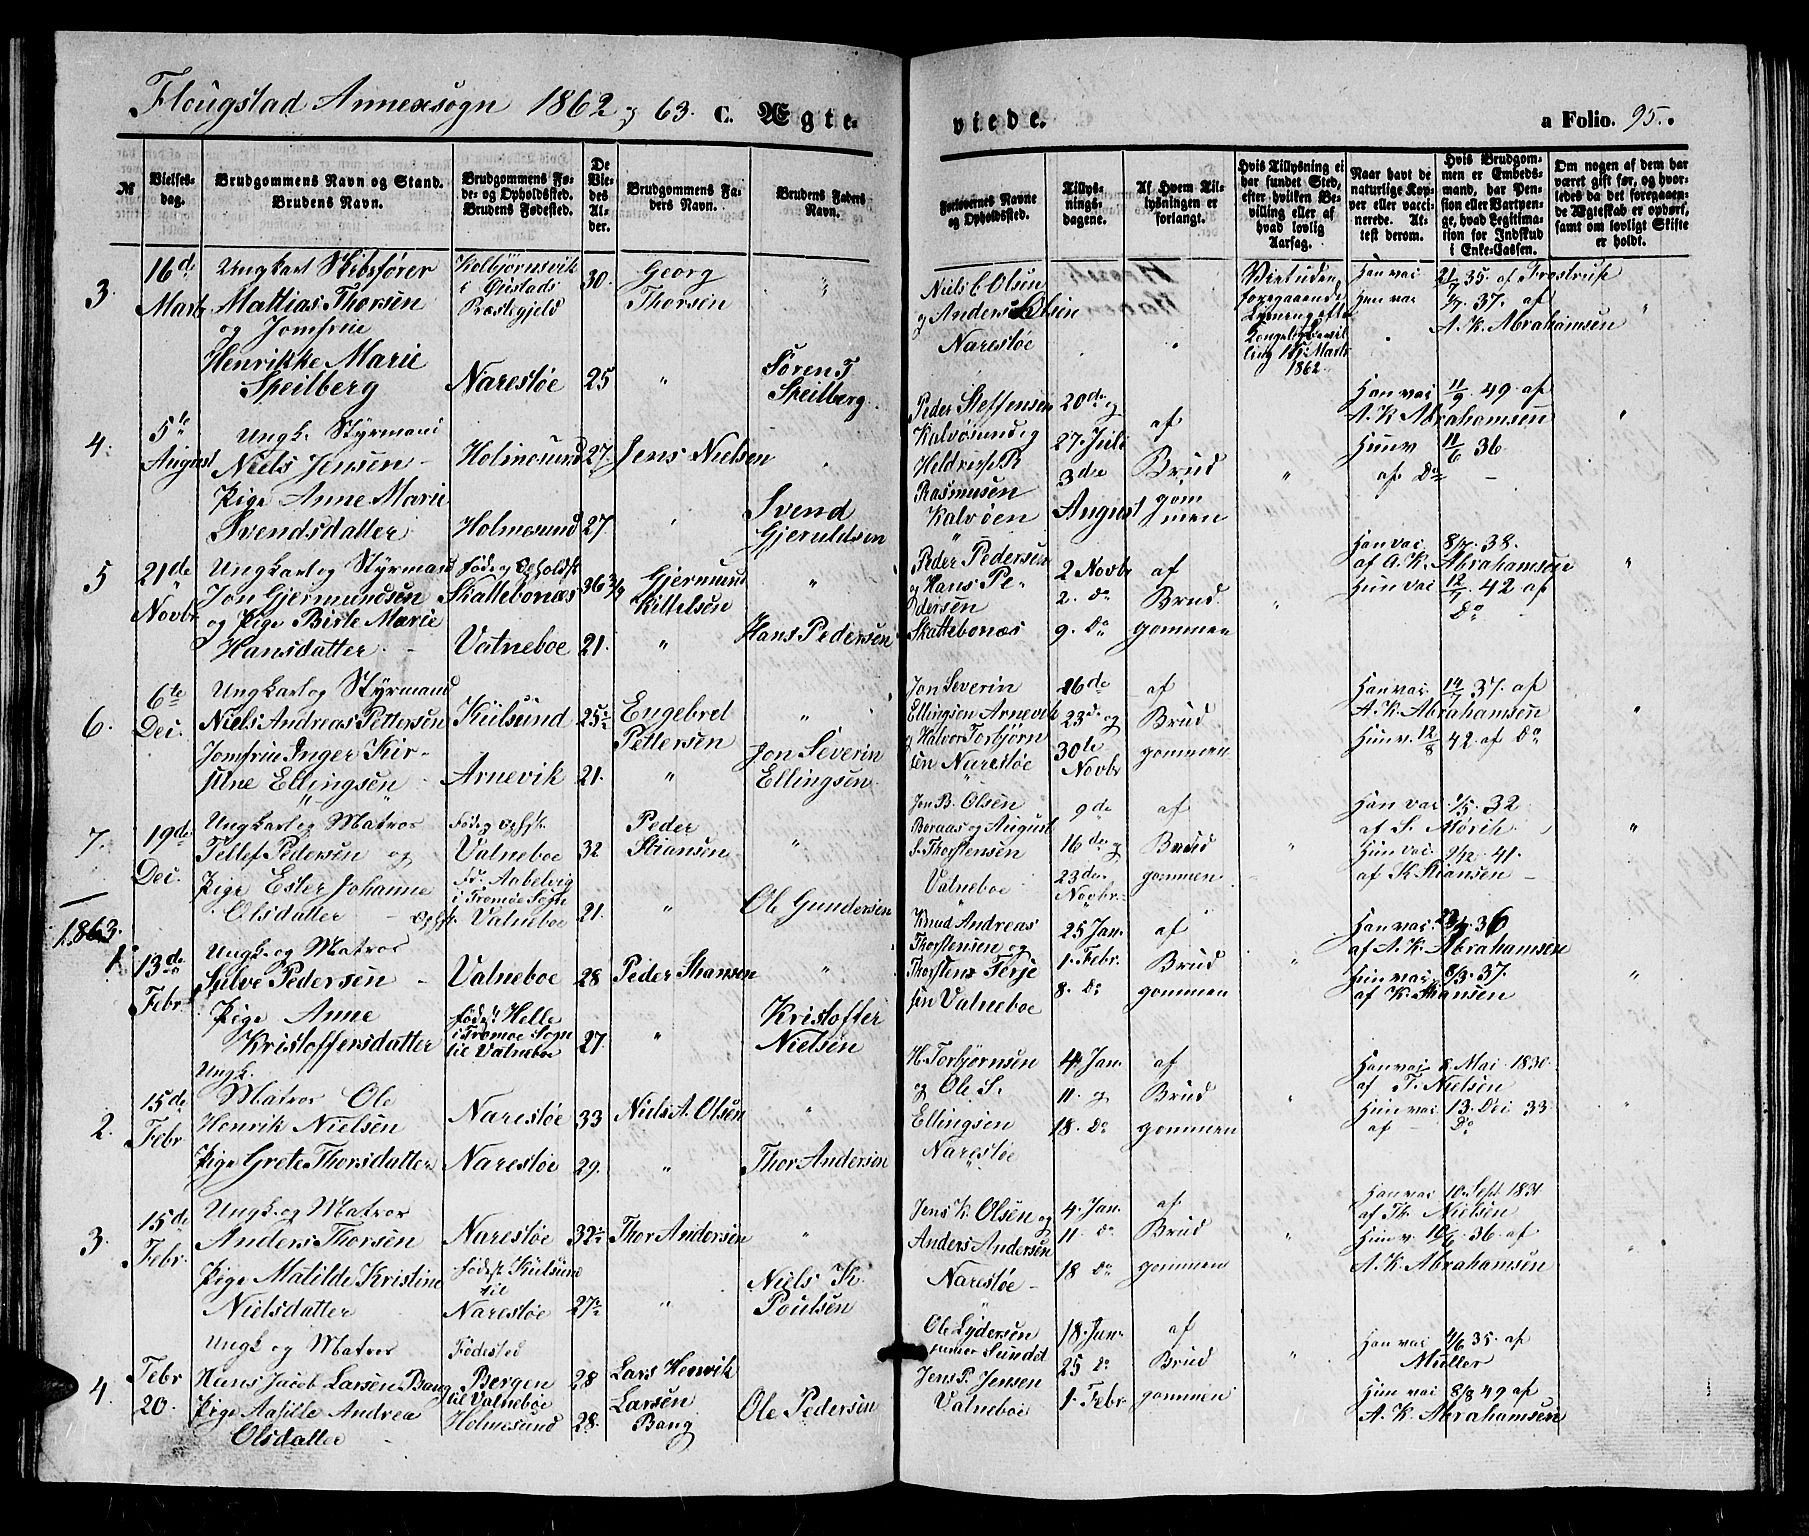 Flougstad Annexsogn 1862 og 63. C. Ægte-
viede.
a Folio. 95.
№
Vielses-
dag.
Brudgommens Navn og Stand.
Brudens Navn.
Brudgommens Fø-
de- og Opholdssted.
Brudens Fødested.
De
Vie-
des
Al-
der.
Brudgommens Fa-
ders Navn.
Brudens Faders
Navn.
Forlovernes Navne
og Opholdssted.
Tillys-
nings-
dagene.
Af Hvem Til-
lysningen er
forlangt.
Hvis Tillysning ei
har fundet Sted,
efter hvilken Be-
villing eller af
hvad lovlig
Aarsag.
Naar havt de
naturlige Kop-
per eller vacci-
nerede. At-
test derom.
Hvis Brudgom-
men er Embeds-
mand, har Pen-
sion eller Vartpen-
ge, hvad Legitima-
tion for Indskud
i Enke-Cassen.
Om nogen af dem har
været gift før, og hvor-
ledes da det foregaaen-
de Ægteskab er ophørt,
samt om lovligt Skifte
er holdt.
3.
16de
Marts
Ungkarl Skibsfører
Mattias Thorsen
og Jomfrue
Henrikke Marie
Speilberg
Kolbjørnsvik
i Øiestads
Præstegjeld
Narestøe
30
25
Georg
Thorsen
Søren T
Speilberg
Niels C Olsen
og Anders Olsen
Narestøe
Viet uden
foregaaende
Lysning efter
Kongelig Bevil
ling 15 Marts
1862
Han vac 2/1 35. af Frostrup
Hun vac 7/7 37. af
A. K. Abrahamsen
4.
5te
August
Ungk. Styrmand
Niels Jensen
Pige Anne Marie
Svendsdatter
Holmesund
Holmesund
27.
27.
Jens Nielsen
Svend
Gjeruldsen
Peder Steffensen
Kalvøsund og
Rasmusen
Kalvøen
20de og
27. Juli
3die
August
af
Brud
gom
men
Han vac 11/9. 49 af
A. K. Abrahamsen
Hun v 11/6 36
af Do
5
21de
Novbr
Ungkarl og Styrmand
Jon Gjermundsen
og Pige Birte Marie
Hansdatter
Føde og Opholdst
Skattebonæs
Valneboe
36 3/4
21.
Gjermund
Kittelsen
Hans Pedersen
Peder Pedersen
og Hans Pe-
dersen
Skattebonæs
2 Novbr
2. Do
9. Do
af
Brud
gommen
Han vac 8/7. 38.
af A. K. Abrahamsen
Hun vac 12/7. 42 af
Do
6.
6te
Dec.
Ungkarl og Styrmand
Niels Andreas Pettersen
Jomfrue Inger Kir-
stine Ellingsen
Kiilsund
Arnevik
25½
21.
Engebret
Pettersen
Jon Severin
Ellingsen
Jon Severin
Ellingsen Arnevik
og Halvor Torbjørn
sen Narestøe
16de
23de og
30te
Novbr
af
Brud
gommen
Han vac 14/7 37. af
A. K. Abrahamsen
Hun v. 12/8 42. af Do
7.
19de
Dec.
Ungkarl og Matros
Tellef Pedersen og
Pige Ester Johanne
Olsdatter
Føde og Ophst.
Valneboe
fd. Aabelvig
i Tromøe Sogn
Ophst. Valneboe
32
21.
Peder
Stiansen
Ole Gundersen
Jon B. Olsen
Boraas og August
S. Thorstensen
Valneboe
9de
16de og
23de
Novbr.
af
Brud
gommen
Han vac 1/5. 32
af S. Mørch
Hun vac 9/12. 41.
af K. Stiansen
1863.
1
13de
Febr
Ungk. og Matros
Sylve Pedersen
Pige Anne
Kristoffersdatter
Valneboe
født Helle
i Tromøe Sogn
til Valneboe
28
27.
Peder Stiansen
Kristoffer
Nielsen
Knud Andreas
Thorstensen og
Thorstens Terje
sen Valneboe
25 Jan.
1. Febr.
8. Do
af
Brud
gommen
af A. K. Abrahamsen
Hun vac 8/3. 37.
af K. Stiansen
2.
15de
Febr
Ungk.
Matros Ole
Henrik Nielsen
Pige Grete Thorsdatter
Narestøe
Narestøe
33
29.
Niels A. Olsen
Thor Andersen
H. Torbjørnsen
og Ole S.
Ellingsen
Narestøe
4. Jan.
11. og
18. Do
af
Brud
gommen
Han vac 8 Mai 1830
af T. Nielsen
Hun vac 13. Dec 33
af Do
3.
15de
Febr.
Ungk. og Matros
Anders Thorsen
Pige Matilde Kristine
Nielsdatter
Narestøe
født Kiilsund
til
Narestøe
32½
27½
Thor Andersen
Niels K.
Poulsen
Jens K. Olsen og
Anders Andersen
Narestøe
4. Jan.
11. Do
18 Do
af
Brud
gommen
Han vac 10. Sept. 1831
af Th. Nielsen
Hun v. 10/6 36 af
A. K. Abrahamsen
4.
Febr
20.
Ungk. og Matros
Hans Jacob Larsen Bang
Pige Aasille Andrea
Olsdatter
Fødested
Bergen
til Valneboe
Holmesund
28
28.
Lars Henrik
Larsen
Bang
Ole Pedersen
Ole Lydersen
Sundet
Jens P. Jensen
Valneboe
18. Jan.
25 Do
1. Febr
af
Brud
gommen
Han vac 4/6 35. af
Müller
Hun vac 8/8 49 af
A. K. Abrahamsen